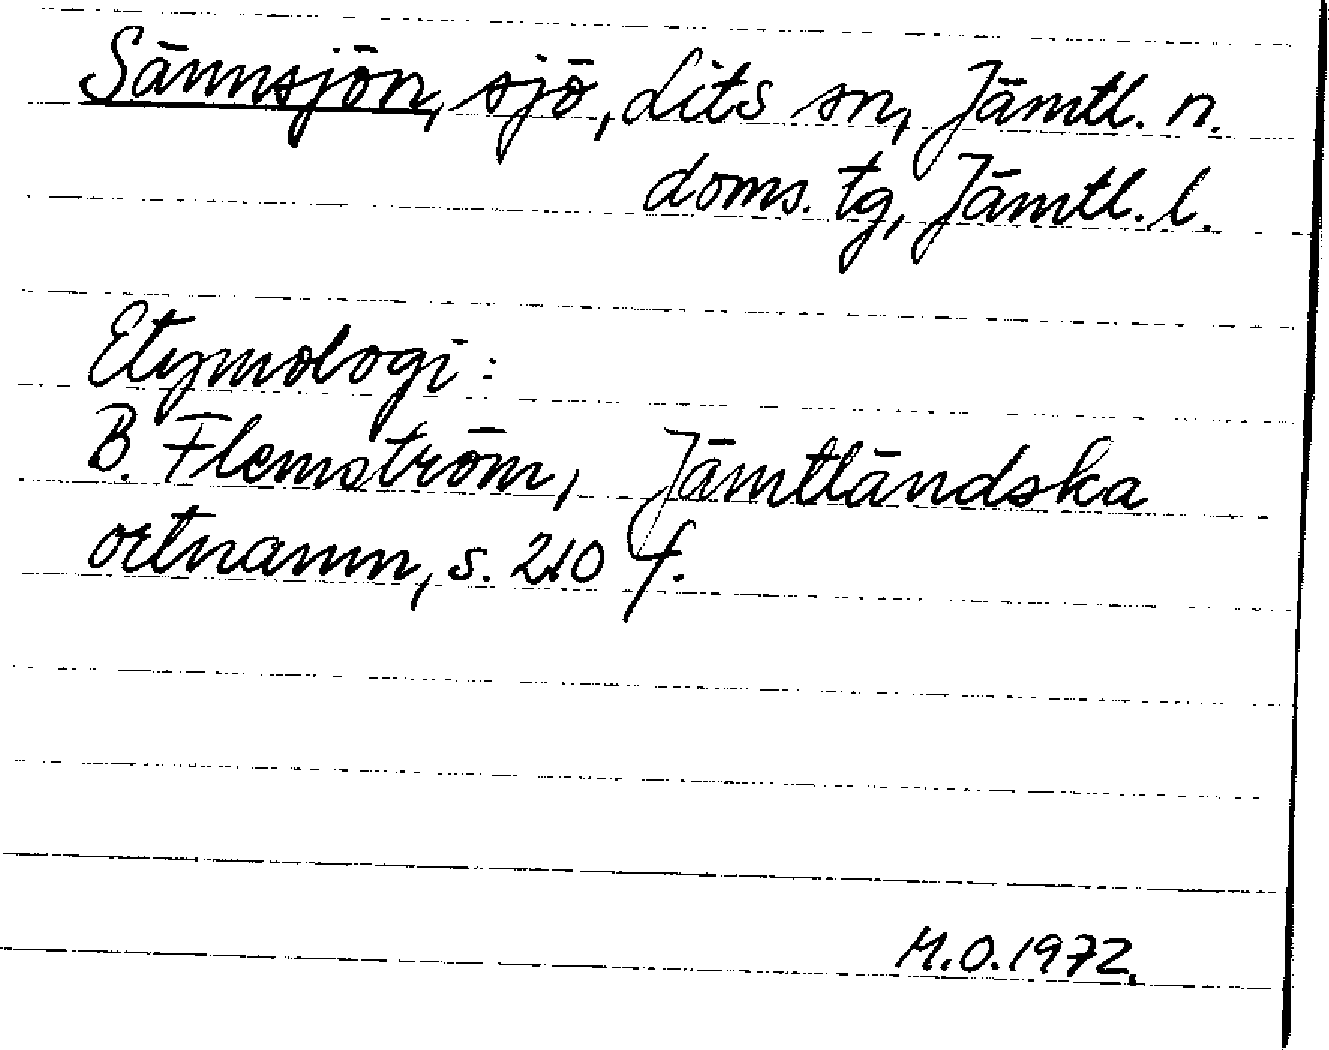 Sännsjön, sjö, Lits sn, Jämtl. n.
doms. tg, Jämtl. l.
Etymologi:
B. Flemström, Jämtländska
ortnamn, s. 210 f.
M.O. 1972.